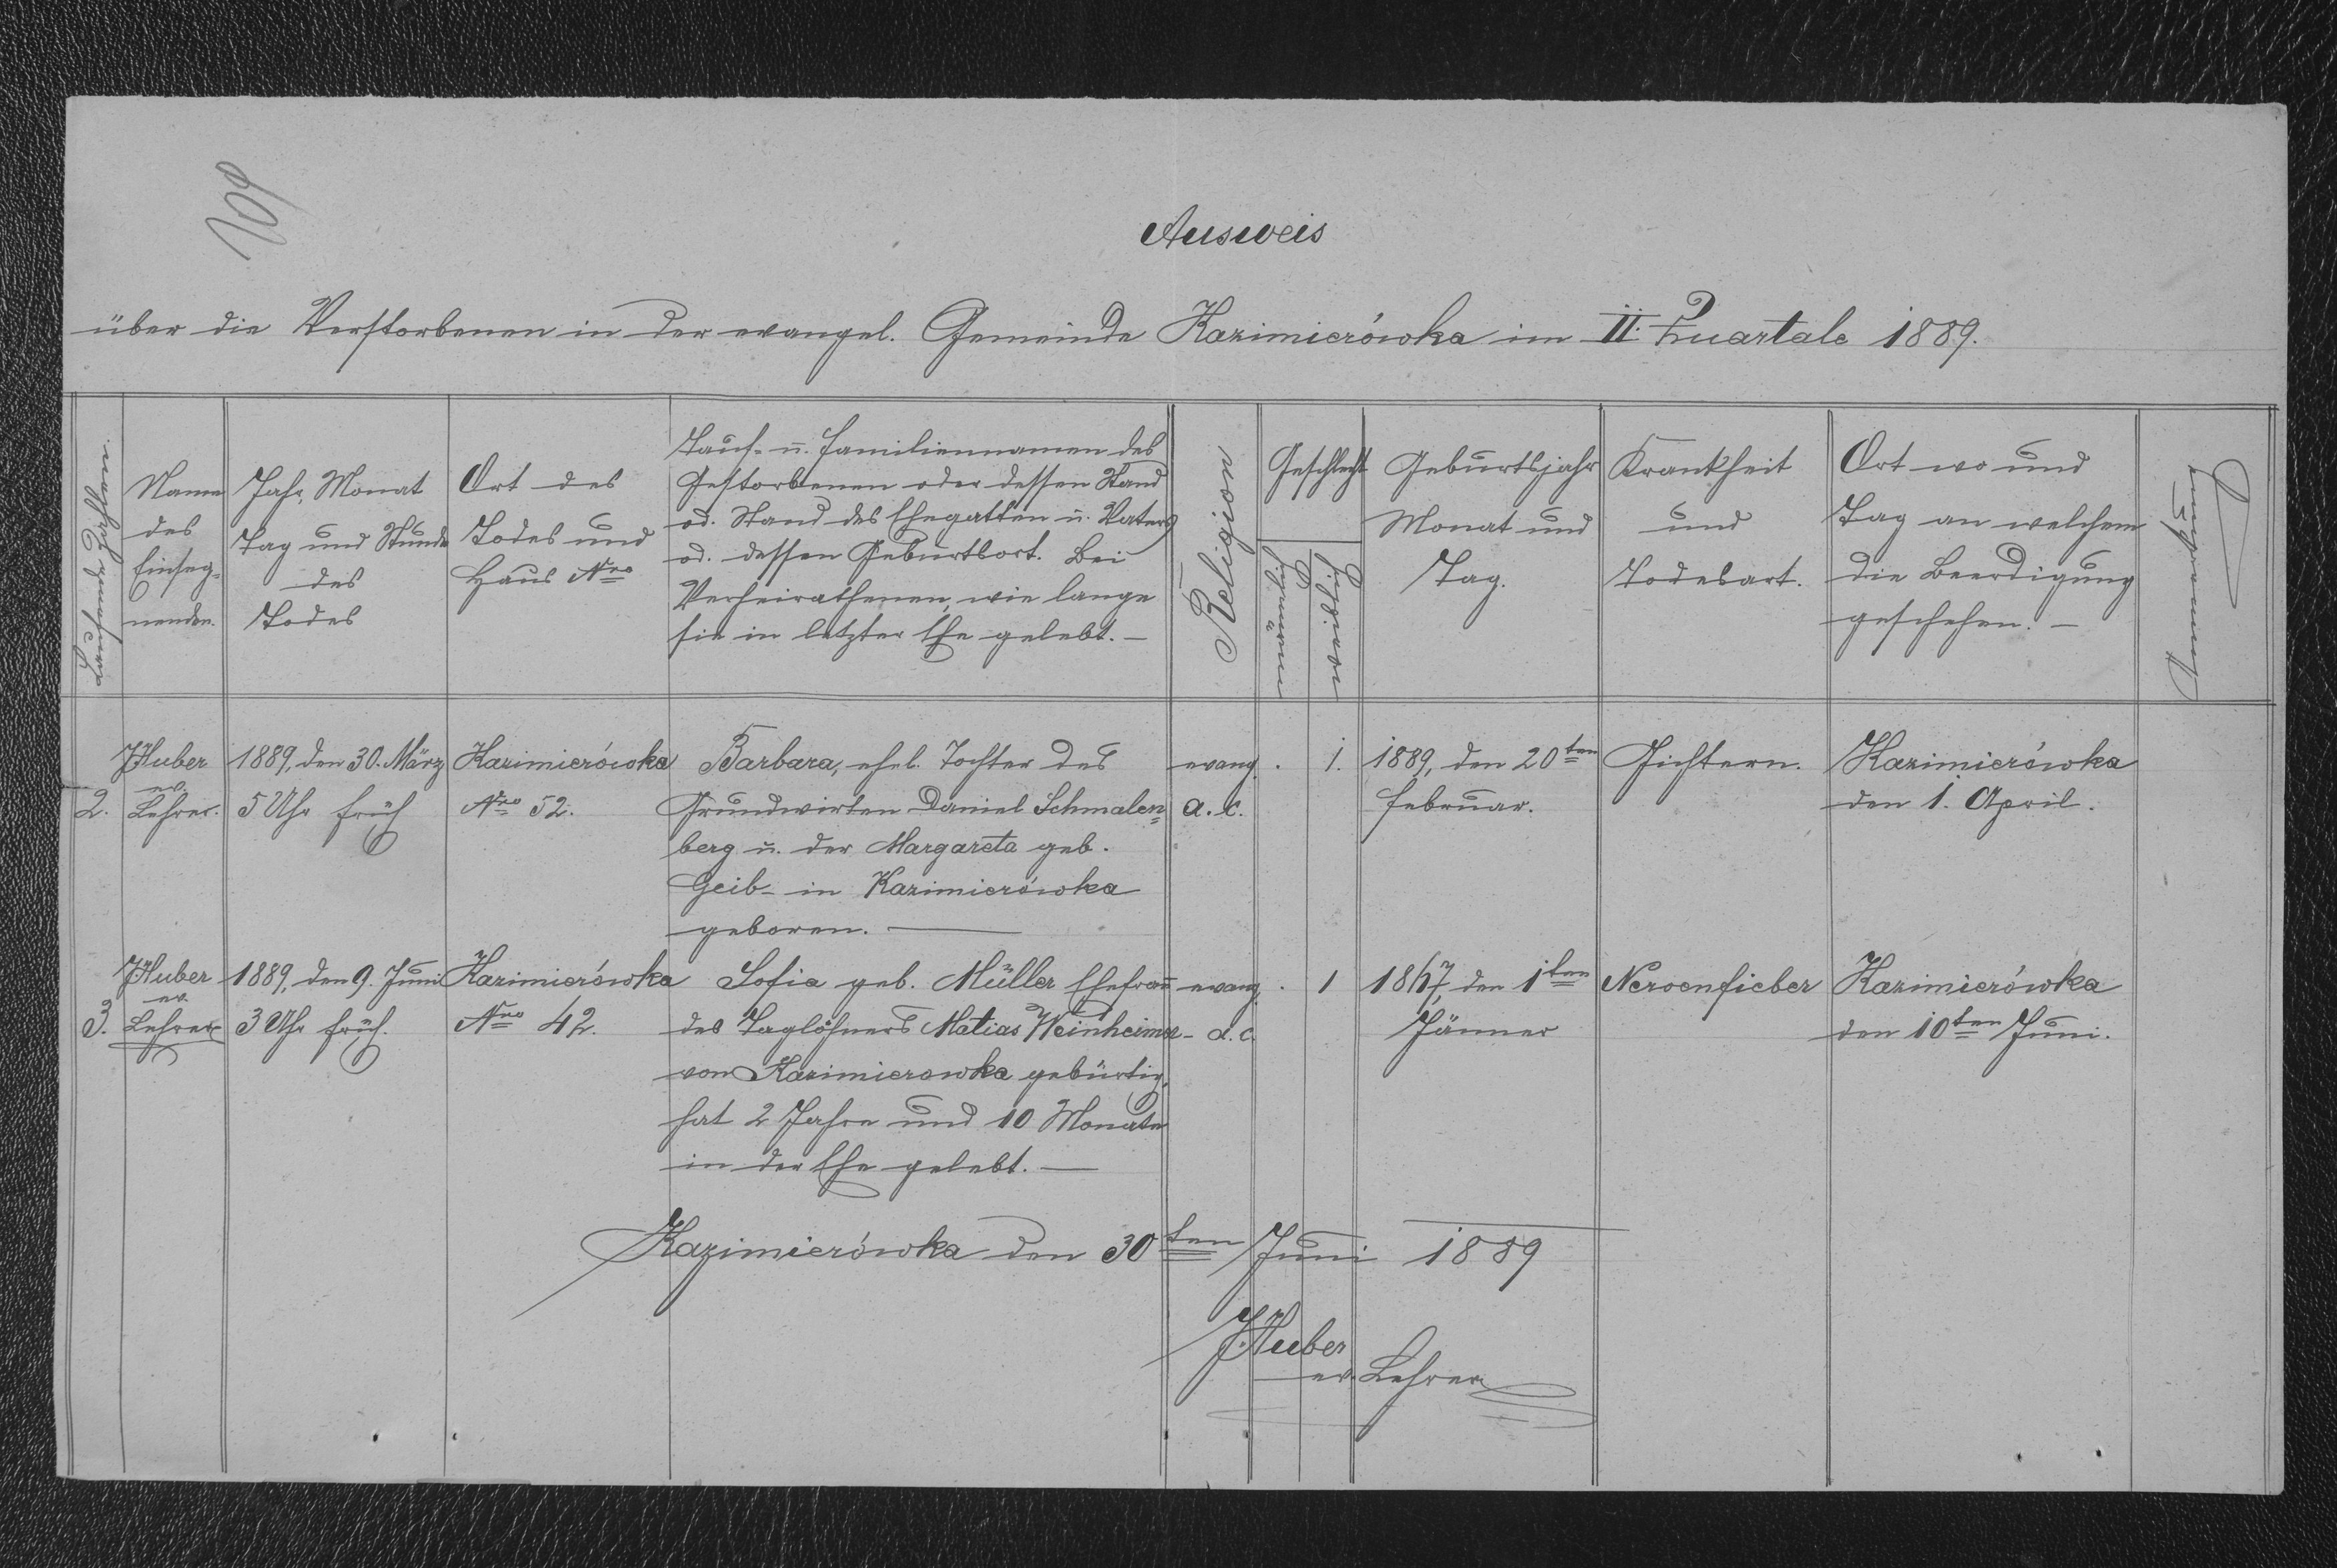 109
Ausweis
über die Verstorbenen in der evangel. Gemeinde Kazimierówka im II. Quartale 1889.
Fortlaufende Zahl
Name
des
Einseg-
nenden.
Jahr, Monat
Tag und Stunde
des
Todes
Ort des
Todes und
Haus Nro
Tauf- u. Familiennamen des
Gestorbenen oder dessen Stand
od. Stand des Ehegatten u. Vaters
od. dessen Geburtsort. Bei
Verheiratheten, wie lange
sie in letzter Ehe gelebt. —
Religion
Geschlecht
männlich
weiblich
Geburtsjahr
Monat und
Tag.
Krankheit
und
Todesart.
Ort wo und
Tag an welchem
die Beerdigung
geschehen. —
Anmerkung
2.
J. Huber
ev.
Lehrer.
1889, den 30. März
5 Uhr früh
Kazimierówka
Nro 52.
Barbara, ehel. Tochter des
Grundwirten Daniel Schmalen=
berg u. der Margareta geb.
Geib - in Kazimierówka
geboren. —
evang.
a. c.
.
1.
1889, den 20ten
Februar.
Gichtern.
Kazimierówka
den 1. April.
3.
J. Huber
ev.
Lehrer
1889, den 9. Juni
3 Uhr früh.
Kazimierówka
Nro 42.
Sofia geb. Müller Ehefrau
des Taglöhners Matias Weinheimer -
von Kazimierowka gebürtig,
hat 2 Jahre und 10 Monate
in der Ehe gelebt. —
evang.
a. c.
.
1
1867, den 1ten
Jänner
Nervenfieber
Kazimierówka
den 10ten Juni.
Kazimierówka den 30ten Juni 1889
J. Huber
ev. Lehrer